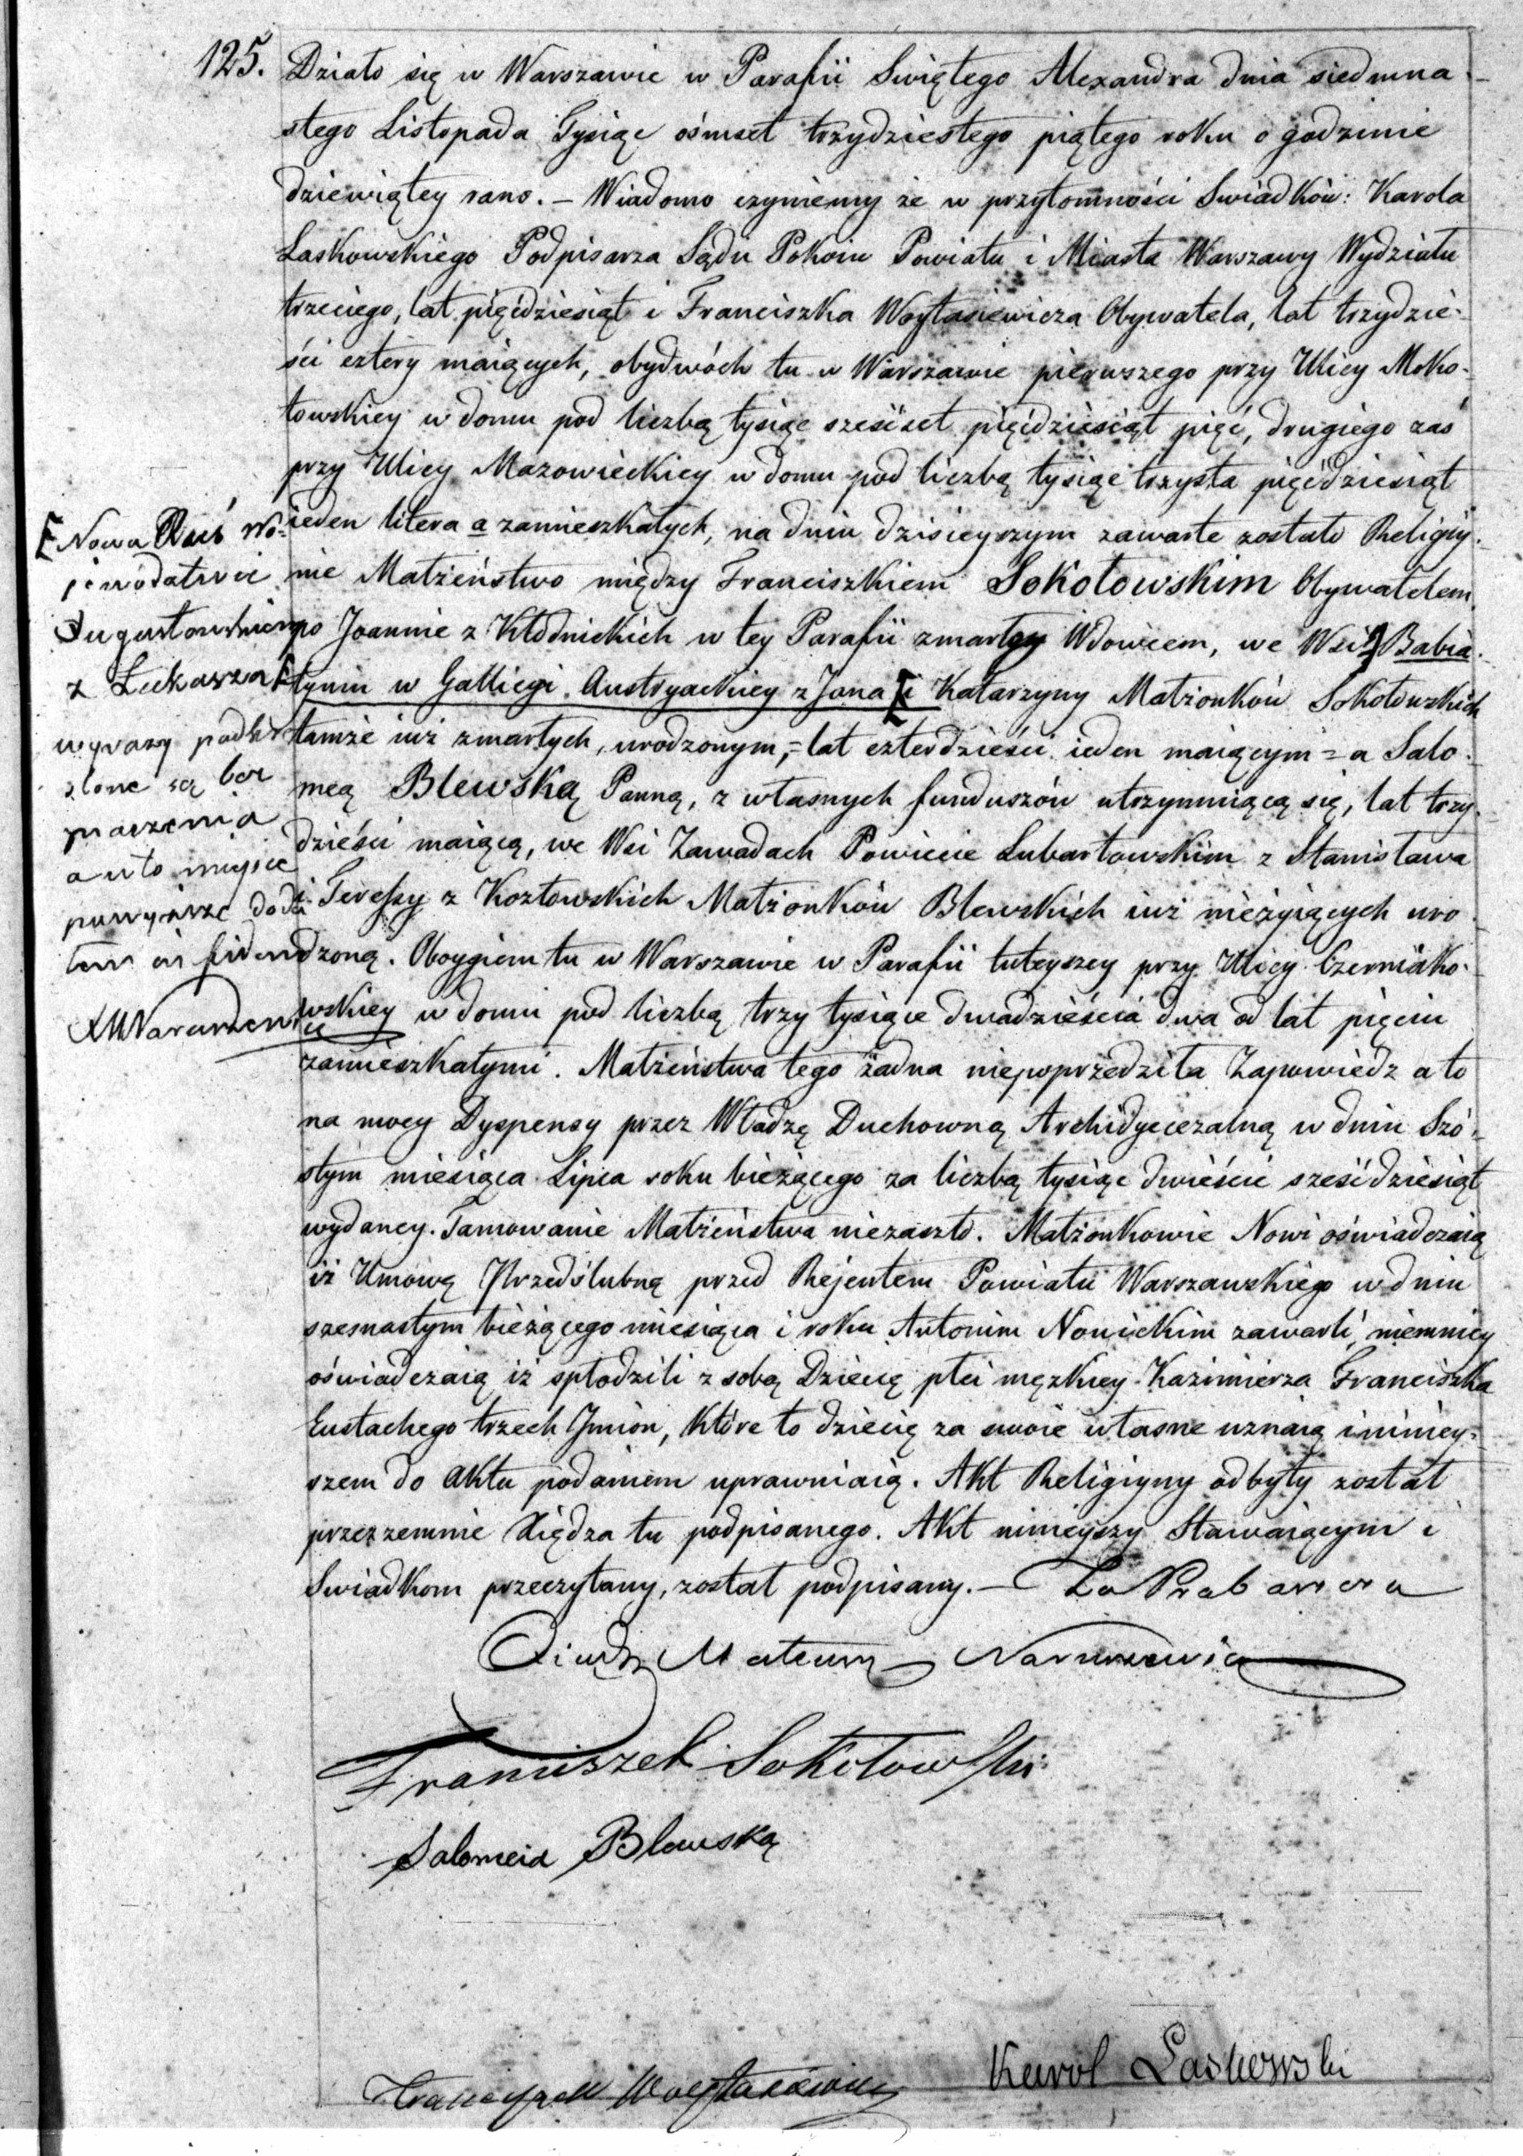 125.
Działo się w Warszawie w Parafii Swiętego Alexandra dnia siedmna-
stego Listopada Tysiąc ośmset trzydziestego piątego roku o godzinie
dziewiątey rano. – Wiadomo czyniemy że w przytomności Swiadków: Karola
Laskowskiego Podpisarza Sądu Pokoiu Powiatu i Miasta Warszawy Wydziału
trzeciego, lat pięćdziesiąt i Franciszka Woytasiewicza Obywatela, lat trzydzie-
ści cztery maiących, obydwóch tu w Warszawie pierwszego przy Ulicy Moko-
towskiey w domu pod liczbą tysiąc sześćset pięćdziesiąt pięć, drugiego zaś
przy Ulicy Mazowieckiey w domu pod liczbą tysiąc trzysta pięćdziesiąt
ieden litera a zamieszkałych, na dniu dzisieyszym zawarte zostało Religiy-
nie Małżeństwo między Franciszkiem Sokołowskim Obywatelem
po Joannie z Kłódnickich w tey Parafii zmarłey Wdowcem, we Wsi Babia-
tyniu w Gallicyi Austryackiey z Jana i Katarzyny Małżonków Sokołowskich
tamże iuż zmarłych, urodzonym, = lat czterdzieści ieden maiącym = a Salo-
meą Blewską Panną, z własnych funduszów utrzymuiącą się, lat trzy-
dzieści maiącą, we Wsi Zawadach Powiecie Lubartowskim z Stanisława
i Teressy z Kozłowskich Małżonków Blewskich iuż nieżyiących uro-
dzoną. Oboygiem tu w Warszawie w Parafii tuteyszey przy Ulicy Czerniako-
wskiey w domu pod liczbą trzy tysiące dwadzieścia dwa od lat pięciu
zamieszkałymi. Małżeństwa tego żadna niepoprzedziła Zapowiedz a to
na mocy Dyspensy przez Władzę Duchowną Archidyecezalną w dniu Szó-
stym miesiąca Lipca roku bieżącego za liczbą tysiąc dwieście sześćdziesiąt
wydaney. Tamowanie Małżeństwa niezaszło. Małżonkowie Nowi oświadczaią
iż Umowę Przedślubną przed Rejentem Powiatu Warszawskiego w dniu
szesnastym bieżącego miesiąca i roku Antonim Nowickim zawarli, niemniey
oświadczaią iż spłodzili z sobą Dziecię płci męzkiey Kazimierza Franciszka
Eustachego trzech Jmion, które to dziecię za swoie własne uznaią i niniey-
szem do Aktu podaniem uprawniaią. Akt Religiyny odbyty został
przezzemnie Xiędza tu podpisanego. Akt ninieyszy Stawaiącym i
Swiadkom przeczytany, został podpisany. – Za Proboszcza
Xiądz Mateusz Naruszewicz
Franciszek Sokołowski
Salomeia Blewską
Karol Laskowski
Franciszek Woytasiewicz
[ Nowa Wieś Wo-
jewództwie
Augustowskiem
z Łukasza [
wyrazy podkre-
slone są bez
znaczenia
a w to miejsce
powyższe doda-
X M Naruszewicz